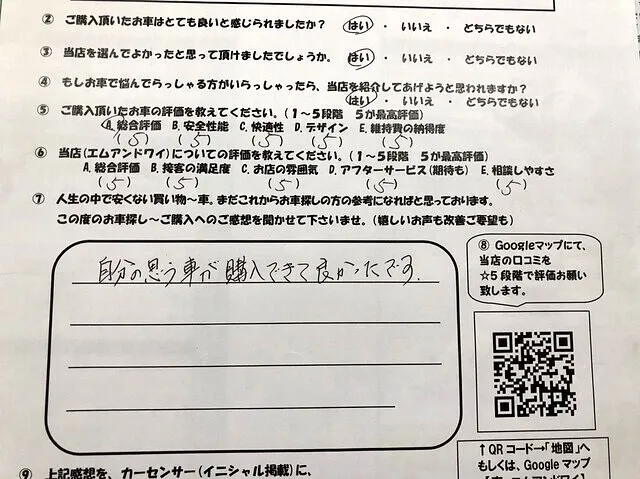 ② ご購入頂いたお車はとても良いと感じられましたか? はい ・ いいえ ・ どちらでもない
③ 当店を選んでよかったと思って頂けましたでしょうか。 はい ・ いいえ ・ どちらでもない
④ もしお車で悩んでらっしゃる方がいらっしゃったら、当店を紹介してあげようと思われますか?
はい ・ いいえ ・ どちらでもない
⑤ ご購入頂いたお車の評価を教えてください。(1~5段階 5が最高評価)
A. 総合評価 B. 安全性能 C. 快適性 D. デザイン E. 維持費の納得度
(5) (5) (5) (5) (5)
⑥ 当店(エムアンドワイ)についての評価を教えてください。(1~5段階 5が最高評価)
A. 総合評価 B. 接客の満足度 C. お店の雰囲気 D. アフターサービス(期待も) E. 相談しやすさ
(5) (5) (5) (5) (5)
⑦ 人生の中で安くない買い物~車。まだこれからお車探しの方の参考になればと思っております。
この度のお車探し~ご購入へのご感想を聞かせて下さいませ。(嬉しいお声も改善ご要望も)
自分の思う車が購入できて良かったです.
⑧ Googleマップにて、
当店の口コミを
☆5段階で評価お願い
致します。
↑QRコード→「地図」へ
もしくは、Googleマップ
⑨ 上記感想を、カーセンサー(イニシャル掲載)に、